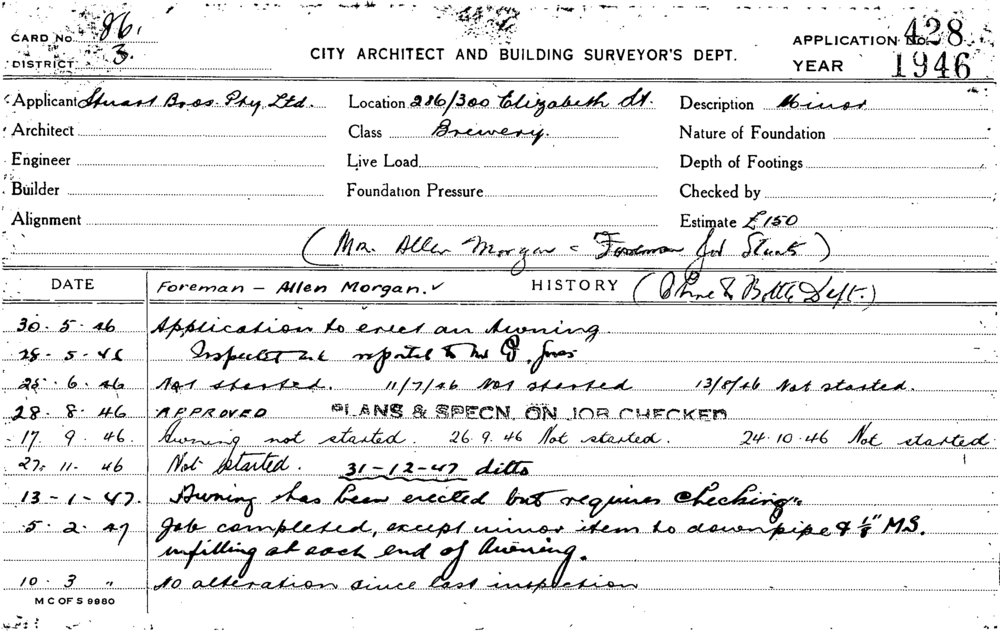 CARD No. 86.
DISTRICT 3.
CITY ARCHITECT AND BUILDING SURVEYOR'S DEPT.
APPLICATION No. 428
YEAR 1946
Applicant Stuart Bros. Pty. Ltd. Location 286/300 Elizabeth St. Description Minor
Architect Class Brewery. Nature of Foundation
Engineer Live Load Depth of Footings
Builder Foundation Pressure Checked by
Alignment Estimate £150
(Mr. Allen Morgan = Foreman for Stuarts)
DATE Foreman – Allen Morgan. ✓ HISTORY ( & Bottle Dept.)
30·5·46 Application to erect an Awning.
28-5-46 Inspected and reported to Mr Jones
25·6·46 Not started. 11/7/46 Not started 13/8/46 Not started.
28·8·46 APPROVED PLANS & SPECN. ON JOB CHECKED
17 9 46. Awning not started. 26.9.46 Not started. 24.10.46 Not started
27. 11. 46 Not started. 31-12-47 ditto
13-1-47. Awning has been erected but requires checking.
5. 2. 47 Job completed, except minor item to downpipe & 1/8" M.S.
infilling at each end of Awning.
10. 3 " No alteration since last inspection
M C OF S 9980